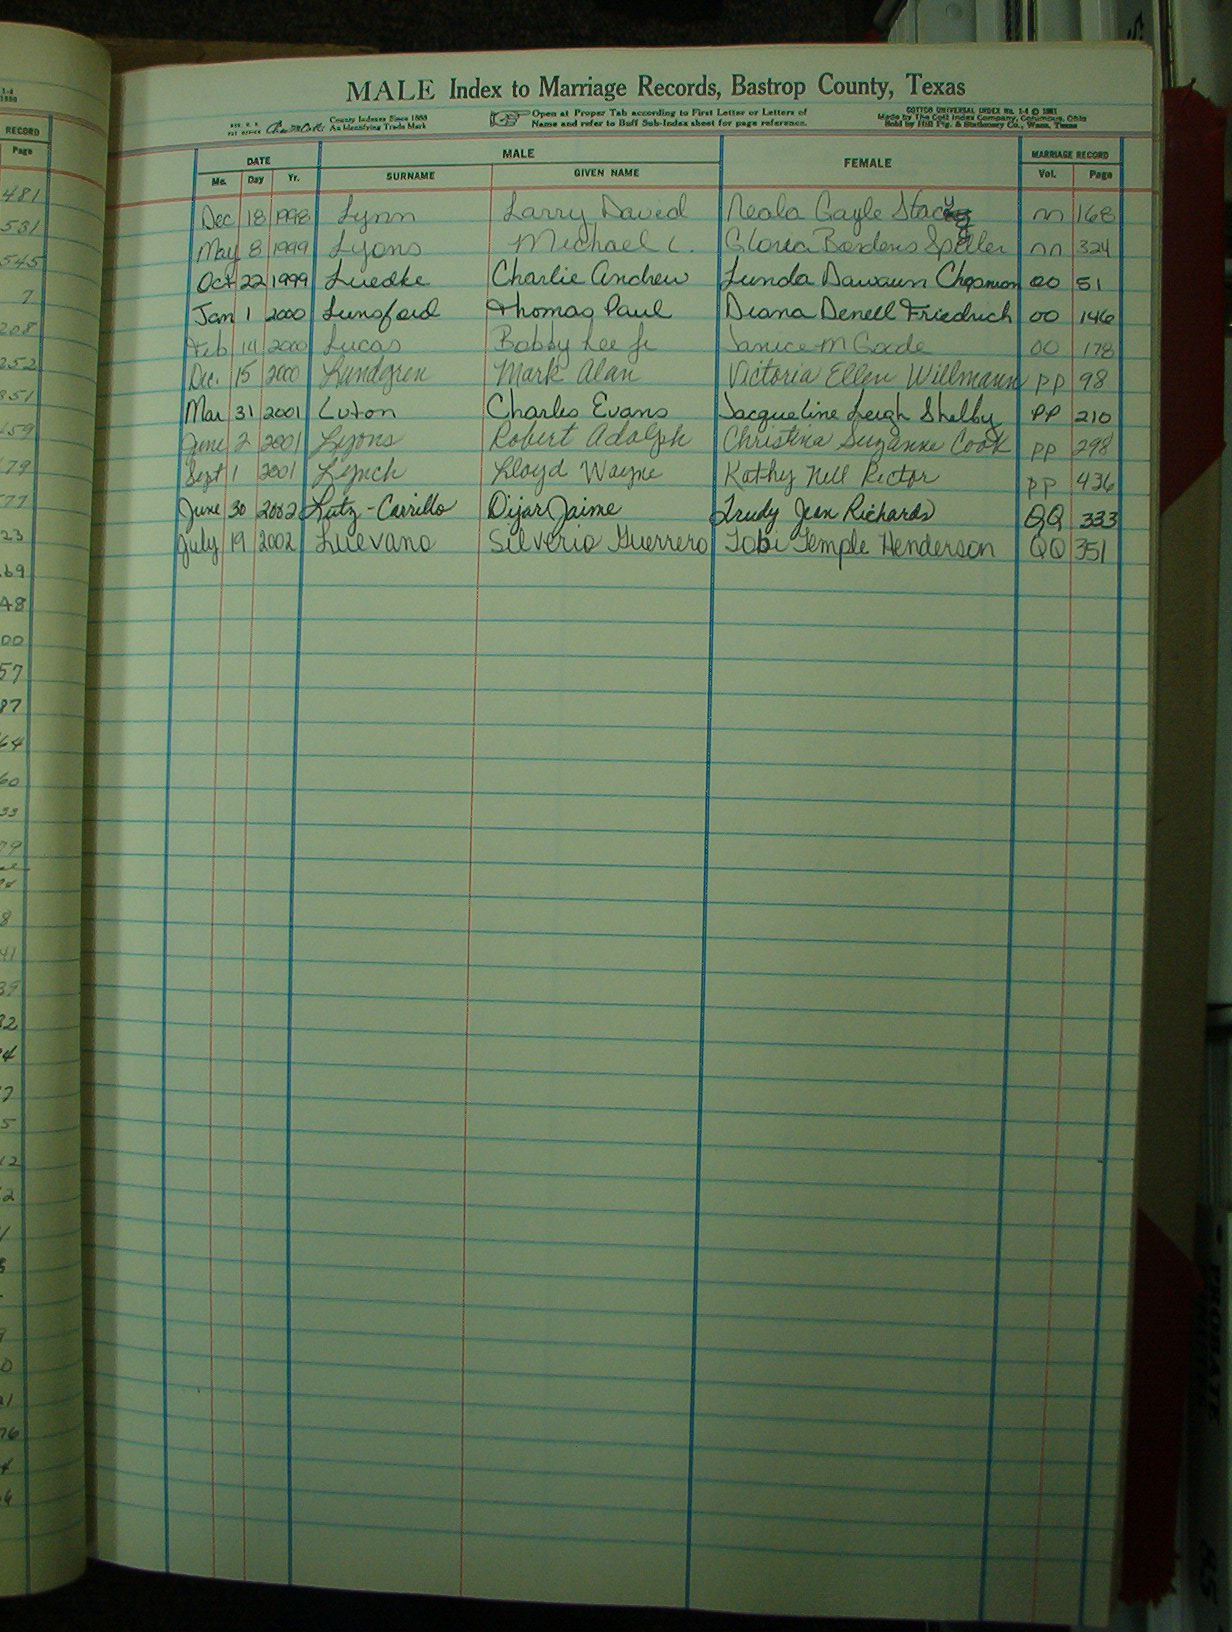 MALE Index to Marriage Records, Bastrop County, Texas
County Indexes Since 1888
An Identifying Trade Mark
Open at Proper Tab according to First Letter or Letters of
Name and refer to Buff Sub-Index sheet for page reference.
COTTCO UNIVERSAL INDEX No. 1-4
Made by The Cott Index Company, Columbus, Ohio
Sold by Hill Ptg. & Stationery Co., Waco, Texas
DATE MALE FEMALE MARRIAGE RECORD
Mo. Day Yr. SURNAME GIVEN NAME Vol. Page
Dec 18 1998 Lynn Larry David Neala Gayle Stacy nn 168
May 8 1999 Lyons Michael C. Gloria Bordens Spiller nn 324
Oct 22 1999 Luedke Charlie Andrew Lunda Dawaun Chapman 00 51
Jan 1 2000 Lunsford Thomas Paul Diana Denell Friedrich 00 146
Feb 14 2000 Lucas Bobby Lee Jr Janice M Goode 00 178
Dec. 15 2000 Lundgren Mark Alan Victoria Ellen Willmann pp 98
Mar 31 2001 Luton Charles Evans Jacqueline Leigh Shelby PP 210
June 2 2001 Lyons Robert Adolph Christina Suzanne Cook pp 298
Sept 1 2001 Lynch Lloyd Wayne Kathy Nell Rector pp 436
June 30 2002 Lutz-Carrillo Dijar Jaime Trudy Jean Richards QQ 333
July 19 2002 Luevano Silverio Guerrero Tobi Temple Henderson QQ 351
RECORD
Page
481
531
545
7
208
252